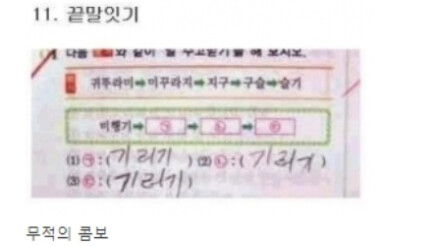 11. 끝말잇기
1 다음 보기 와 같이 말 주고받기를 해 보시오.
보기 귀뚜라미➡미꾸라지➡지구➡구슬➡슬기
비행기➡㉠➡㉡➡㉢
(1) ㉠:(기러기) (2) ㉡:(기러기)
(3) ㉢:(기러기)
무적의 콤보